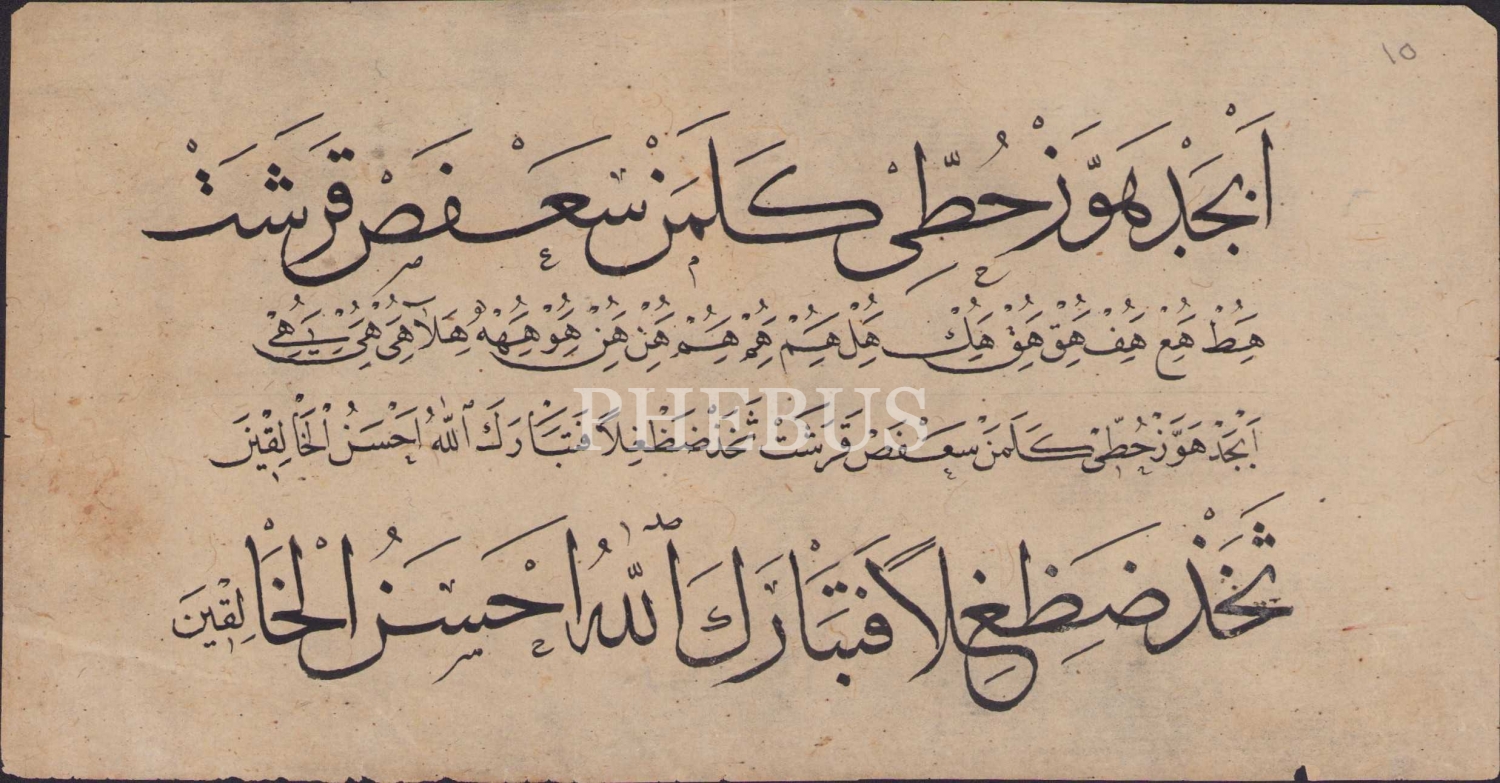 ١٥
اَبْجَدْ هَوَّزْ حُطِّىْ كَلَمَنْ سَعَفَصْ قَرَشَتْ
هِطْ هَعْ هِفْ هَقْ هَقْ هَكْ هَلْ هَمْ هَمْ هَمْ هَنْ هَنْ هَوْ هَهْ هَلَا هَىْ هَىْ هَىْ
اَبْجَدْ هَوَّزْ حُطِّىْ كَلَمَنْ سَعَفَصْ قَرَشَتْ ثَخَذْ ضَظَغِلاً فَتَبَارَكَ ٱللّٰهُ اَحْسَنُ الْخَالِقِينَ
PHEBUS
ثَخَذْ ضَظِغِلاً فَتَبَارَكَ ٱللّٰهُ اَحْسَنُ الْخَالِقِينَ